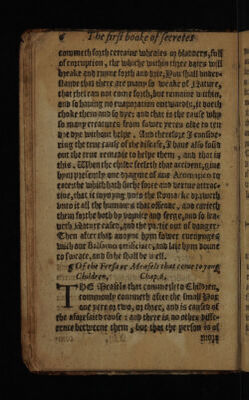 6 The first booke of secretes
commeth forth certaine wheales or bladders, full
of corruption, the whiche within three daies will
breake and runne forth and drie: You shall under-
stand that there are many so weake of Nature,
that thei can not come forth, but remaine within,
and so having no evaporation outwardly, it doeth
choke them and so dye: and that is the cause why
so many creatures from sower yeres olde to ten
doe dye without helpe. And therefore I consider-
yng the true cause of the disease, I have also found
out the true remedie to helpe them, and that is
this. When the childe feeleth that accident, give
hym presently one dragme of our Aromatico to
eate, the which hath suche force and vertue attrac-
tive, that it
unto it all the humours that offende, and carieth
them forthe both by vomite and siege, and so lea-
veth Nature eased, and the partie out of danger:
Then after that anoynt hym sower evenynges
with our Balsamo and late hym doune
to sweate, and so he shall be well.
¶ Of the Fersa or Measels that come to yong
Children. Chap. 8.
THE Measels that commeth to Children,
commonly commeth after the small Pox
one yere or two, or three, and is caused of
the aforesaied cause: and there is no other diffe-
rence betweene them, but that the person is of
more